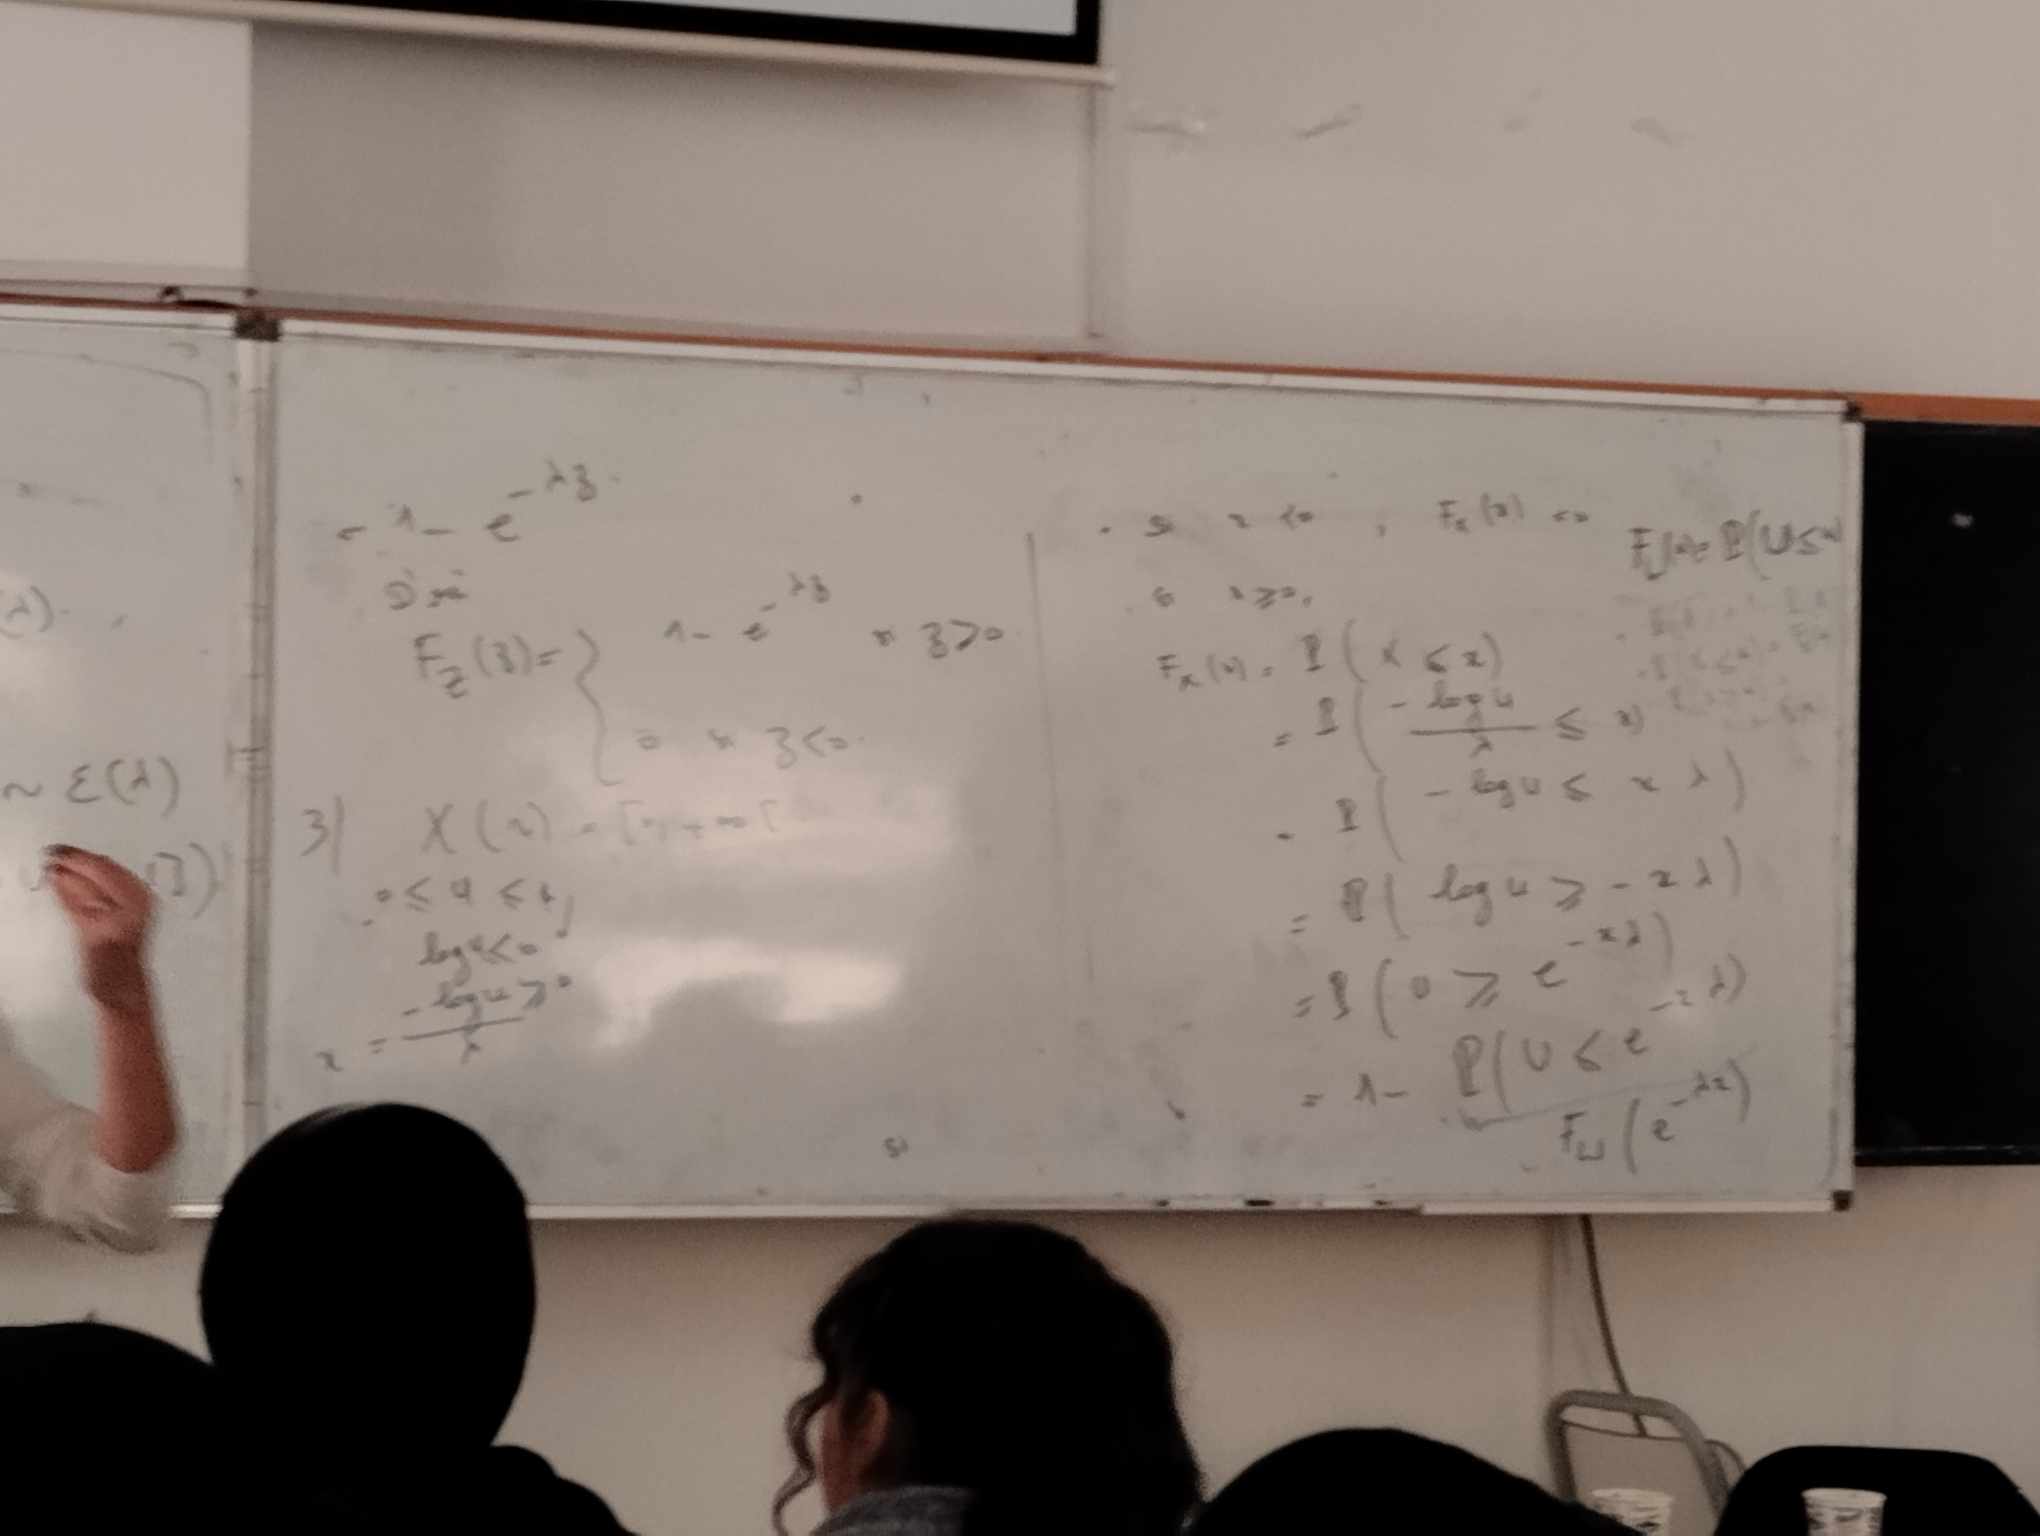 (λ).
~ Ɛ(λ)
= 1 - e^{-λz}.
D'où
F_Z(z) = { 1 - e^{-λz} si z>0
0 si z<0.
3) X(Ω) = [0, +∞[
. 0 ≤ u ≤ 1,
log u<0
-log u ≥ 0
x = -log u / λ
si
. Si x <0, F_X(x) =0
. Si x≥0,
F_X(x) = P(X ≤ x)
= P(-log u / λ ≤ x)
= P(-log u ≤ x λ)
= P(log u ≥ -x λ)
= P(U ≥ e^{-xλ})
= 1 - P(U ≤ e^{-xλ})
F_U(e^{-λx})
F_U(x) = P(U≤x)